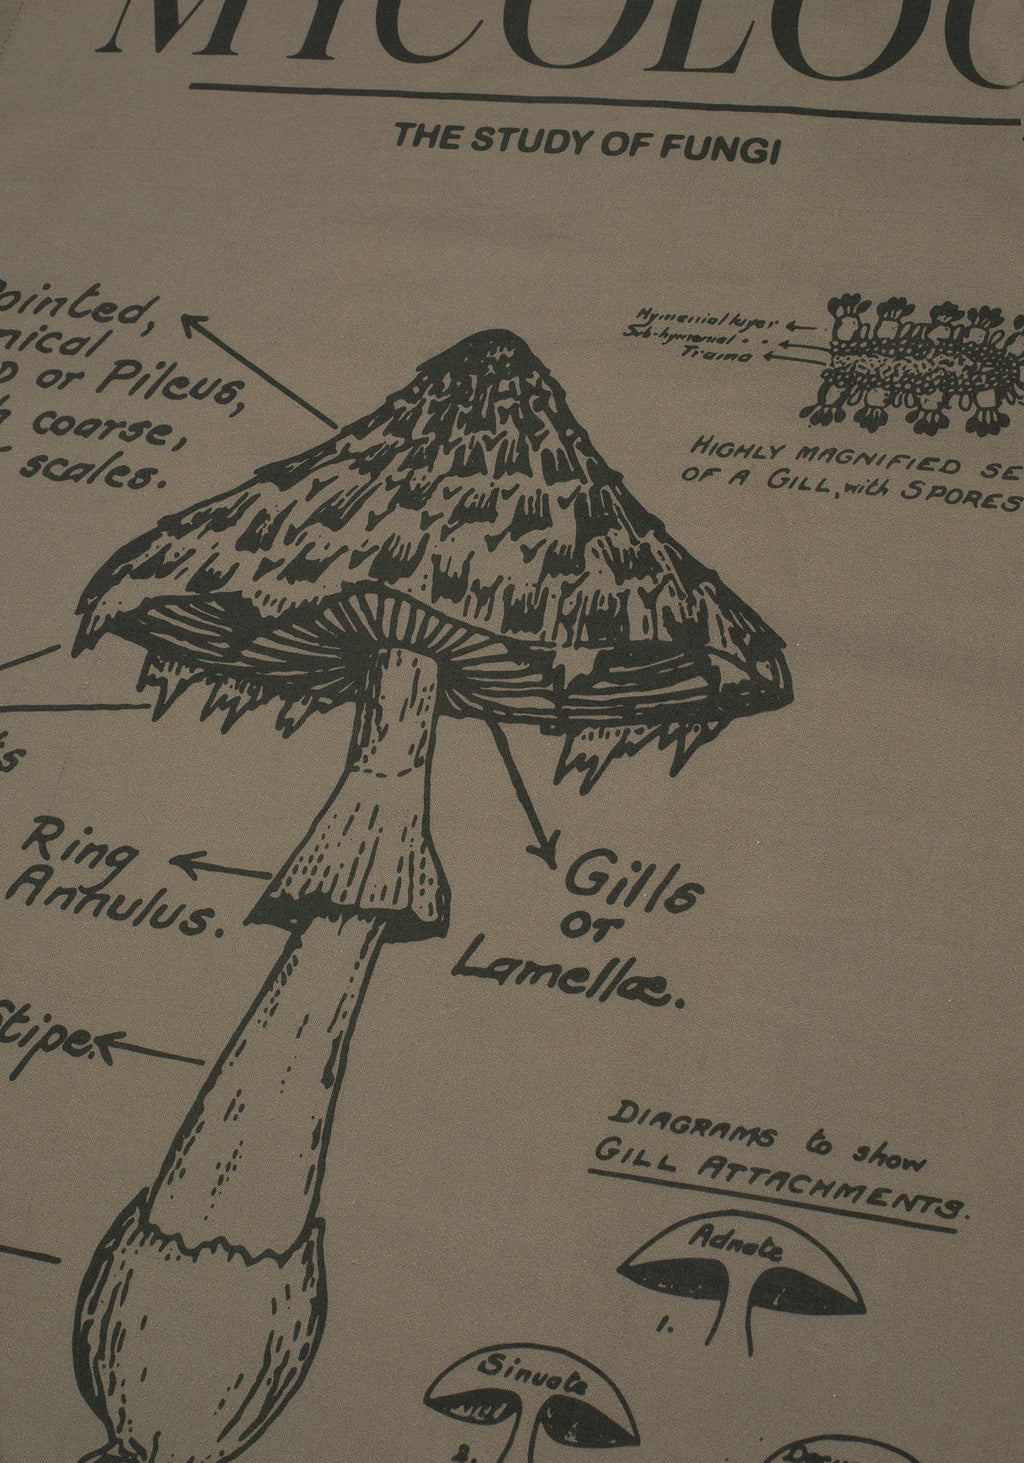 MYCOLOG
THE STUDY OF FUNGI
Pointed,
nical
D or Pileus,
h coarse,
scales.
Hymenial layer
Sub-hymenial . .
Trama
HIGHLY MAGNIFIED SE
OF A GILL, with SPORES
ts
Ring
Annulus.
Gills
or
Lamellæ.
Stipe.
DIAGRAMS to show
GILL ATTACHMENTS.
Adnate
1.
Sinuate